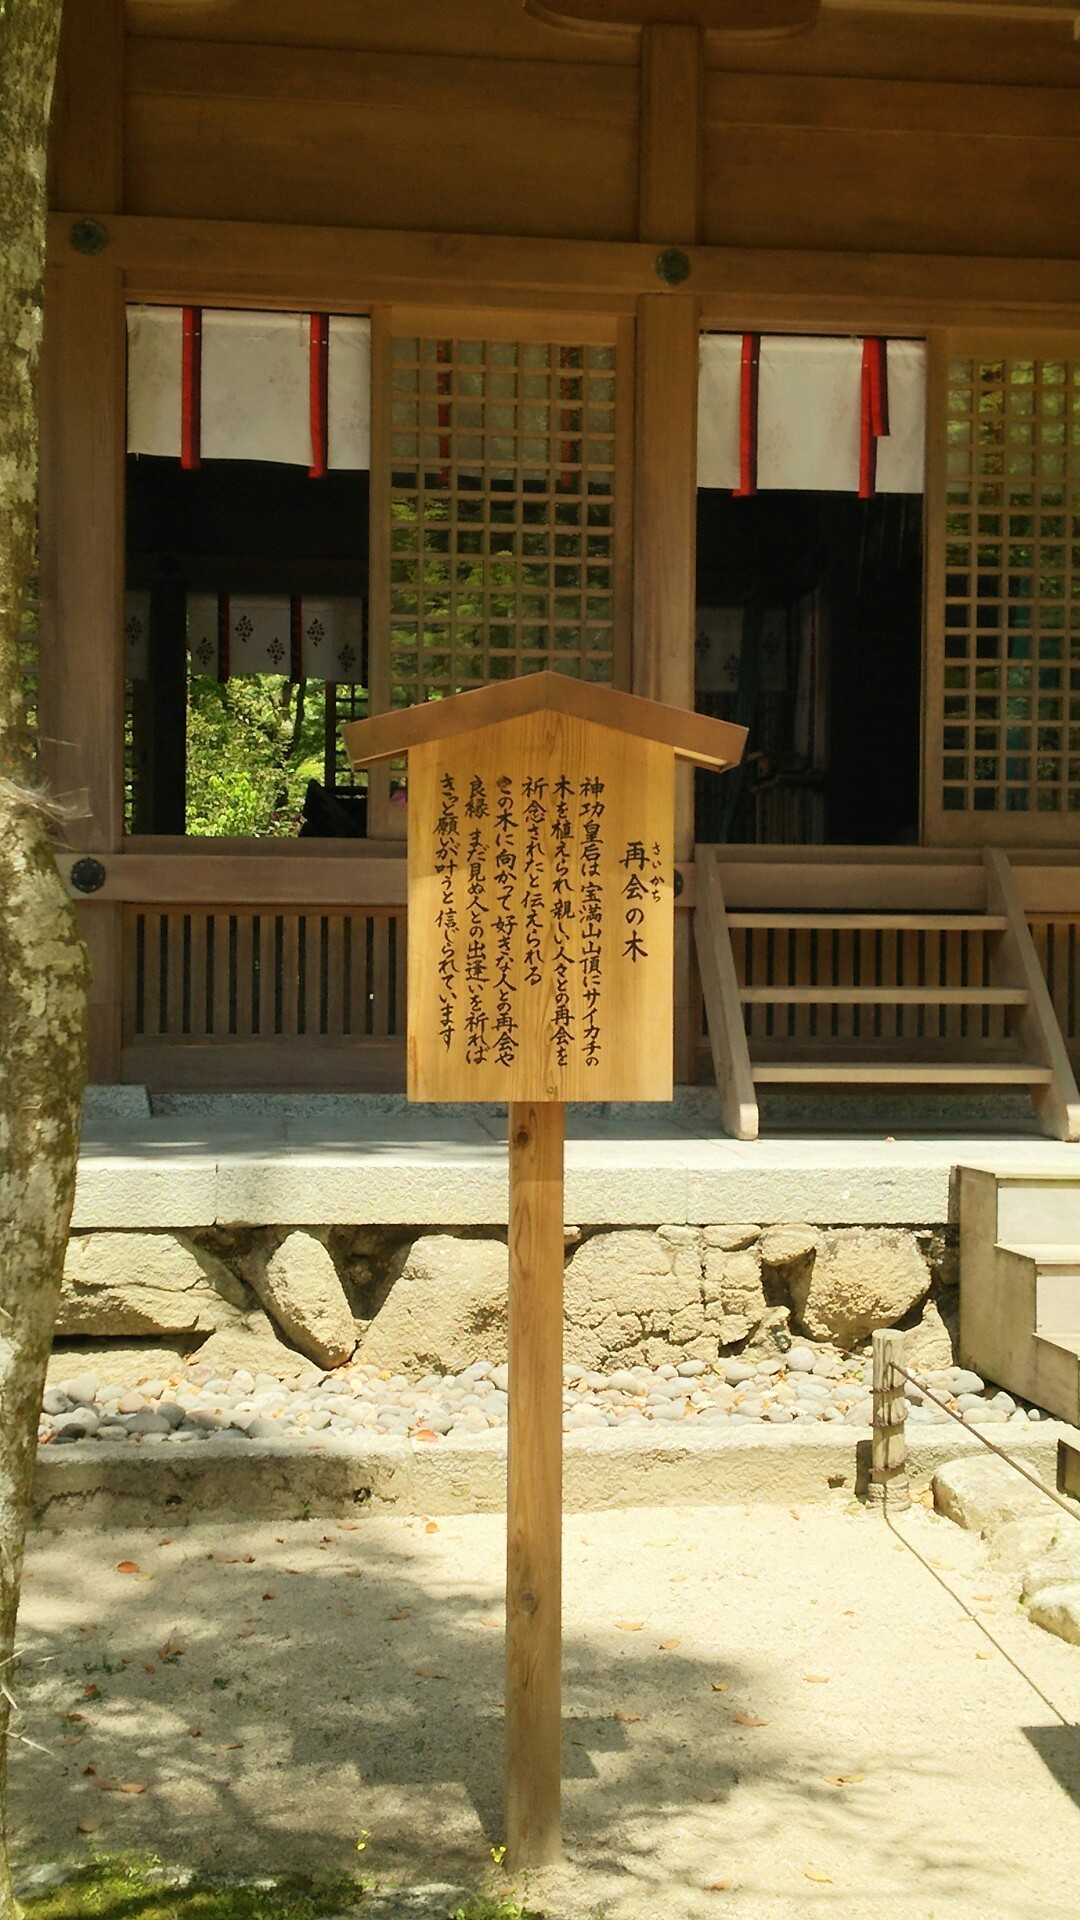 再会の木
さいかち
神功皇后は宝満山山頂にサイカチの
木を植えられ親しい人々との再会を
祈念されたと伝えられる
この木に向かって好きな人との再会や
良縁 まだ見ぬ人との出逢いを祈れば
きっと願いが叶うと信じられています